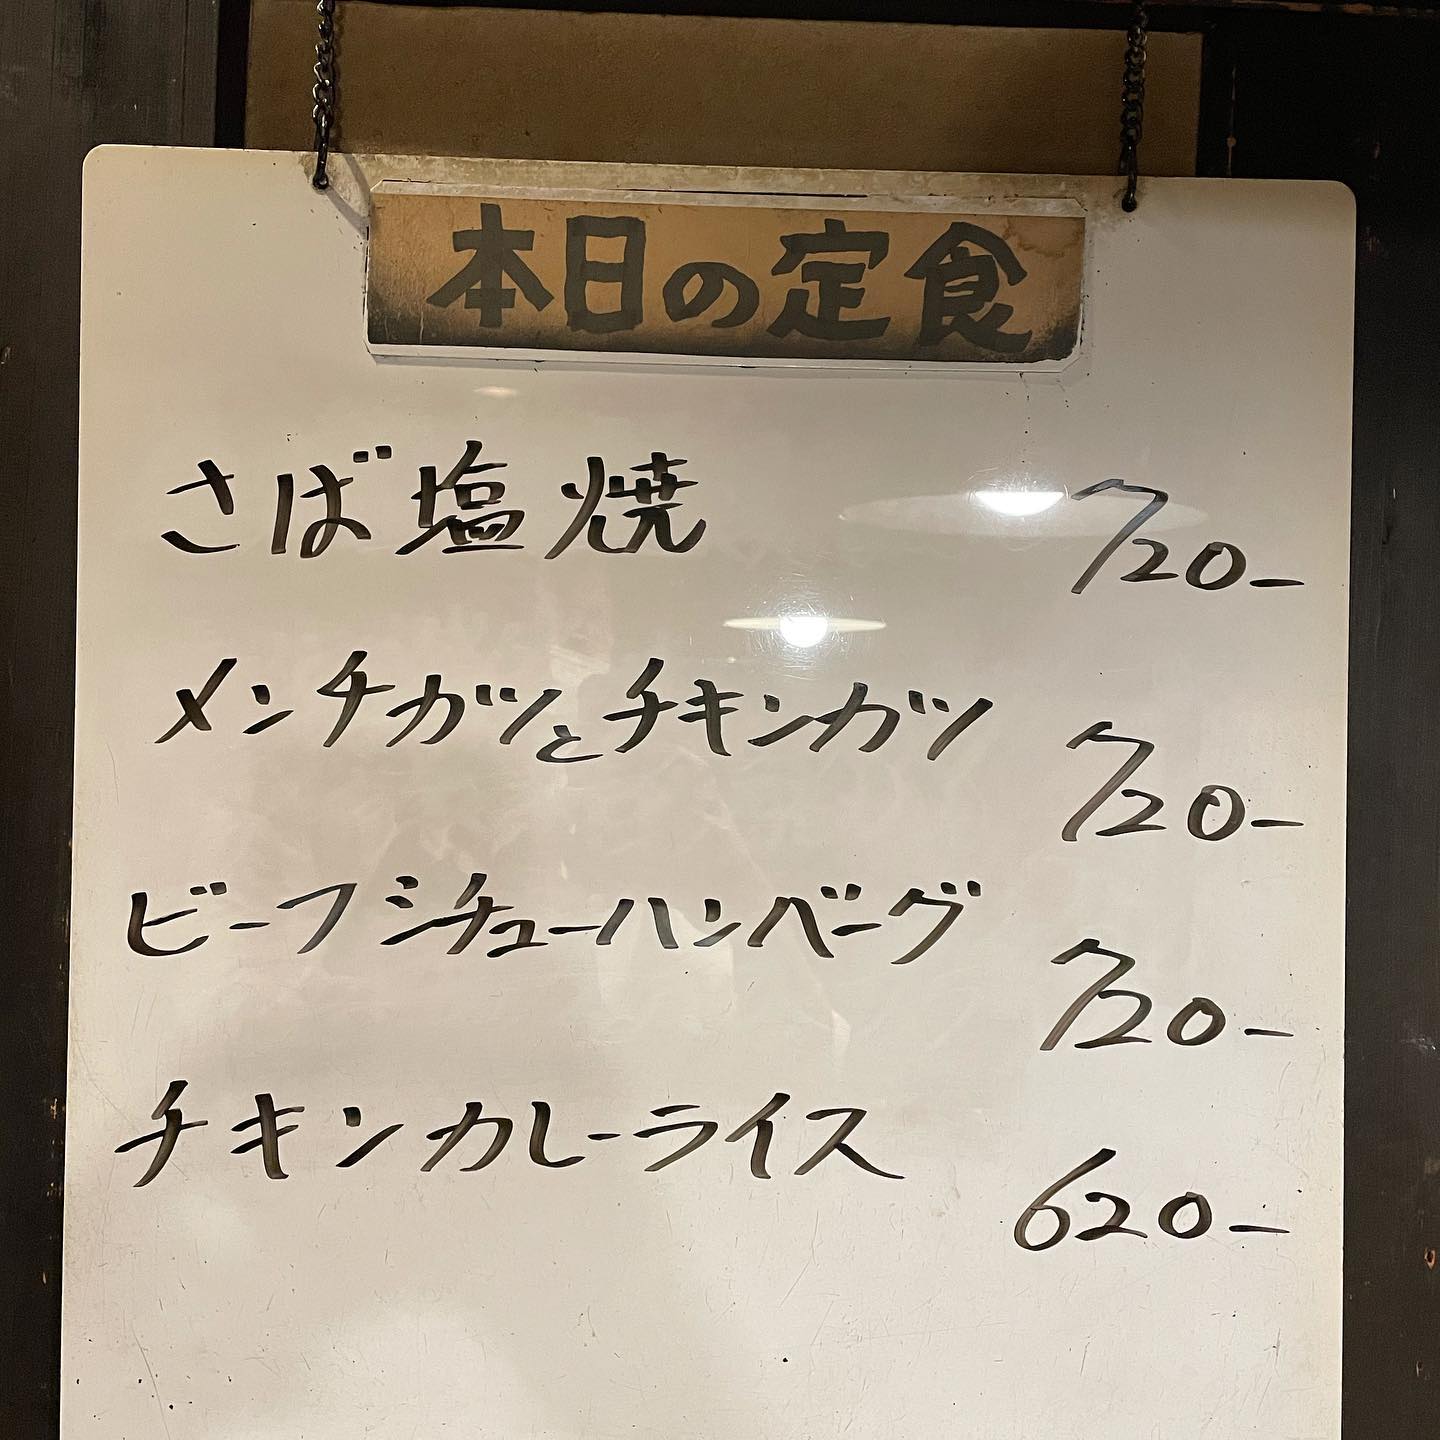 本日の定食
さば塩焼 720-
メンチカツとチキンカツ 720-
ビーフシチューハンバーグ 720-
チキンカレーライス 620-